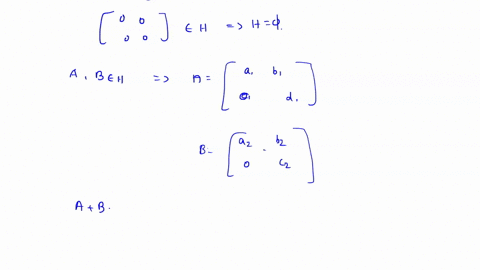 [ 0 0 ; 0 0 ] ∈ H => H = ϕ.
A, B ∈ H => A = [ a₁ b₁ ; 0 d₁ ]
B = [ a₂ b₂ ; 0 c₂ ]
A + B.